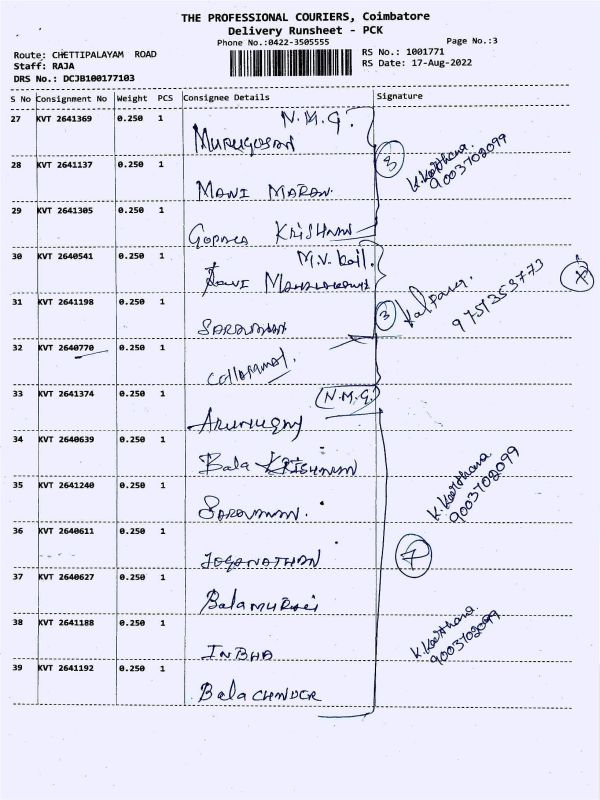 THE PROFESSIONAL COURIERS, Coimbatore
Delivery Runsheet - PCK
Phone No.:0422-3505555
Page No.:3
Route: CHETTIPALAYAM ROAD
RS No.: 1001771
Staff: RAJA
RS Date: 17-Aug-2022
DRS No.: DCJB100177103
S No Consignment No Weight PCS Consignee Details Signature
27 KVT 2641369 0.250 1 N.M.G.
Murugesan
3
K.Keerthana.
9003702099
28 KVT 2641137 0.250 1
Mani Maran.
29 KVT 2641305 0.250 1
Gopala Krishnan
30 KVT 2640541 0.250 1 M.V. Koil.
31 KVT 2641198 0.250 1
Saravanan
3
Kalpana.
32 KVT 2640770 0.250 1
33 KVT 2641374 0.250 1 N.M.G.
Arumugam
34 KVT 2640639 0.250 1
Bala Krishnan
35 KVT 2641240 0.250 1
Saravanan.
K.Keerthana
9003702099
36 KVT 2640611 0.250 1
Joganathan
7
37 KVT 2640627 0.250 1
38 KVT 2641188 0.250 1
Inbha
K.Keerthana.
9003702099
39 KVT 2641192 0.250 1
Bala Chander